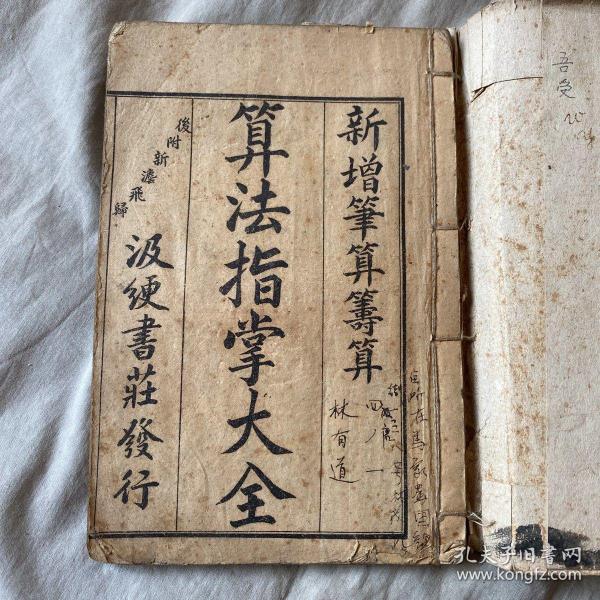 新增筆算籌算
算法指掌大全
後附新灋飛歸
汲綆書莊發行
林有道
吾受
孔夫子旧书网
www.kongfz.com